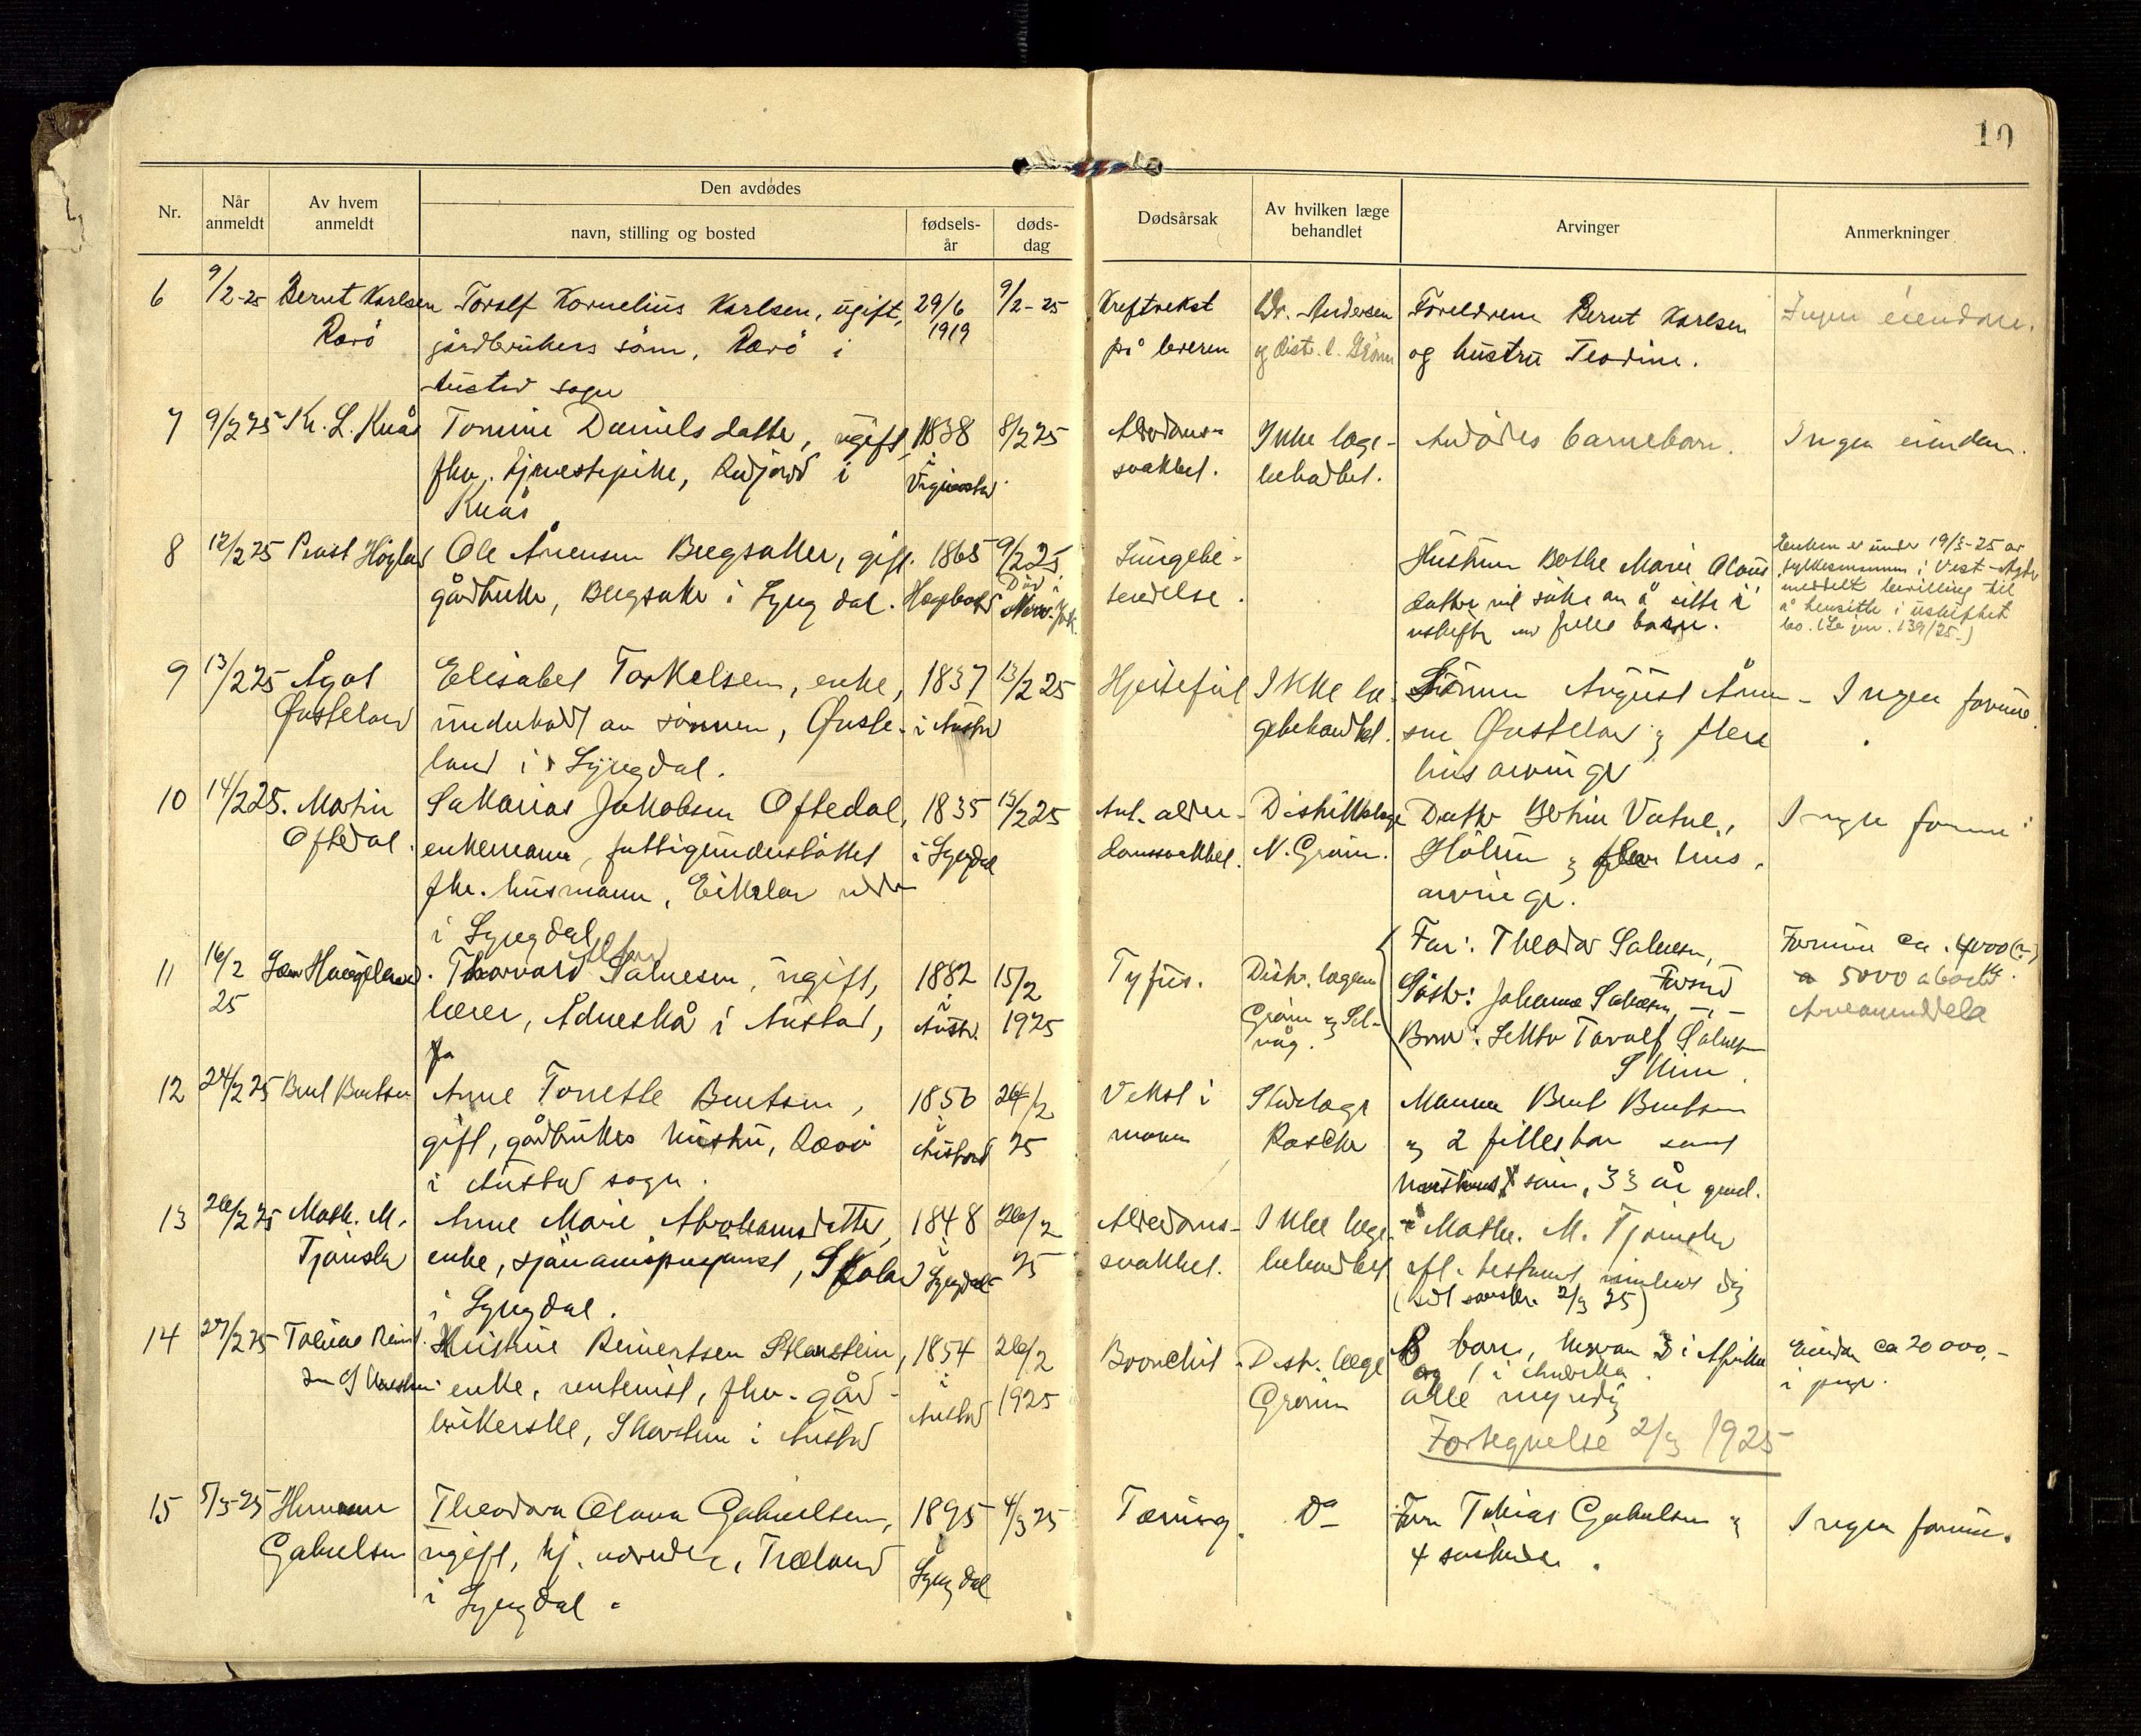 10
Nr.
Når
anmeldt
Av hvem
anmeldt
Den avdødes
navn, stilling og bosted
fødsels-
år
døds-
dag
Dødsårsak
Av hvilken læge
behandlet
Arvinger
Anmerkninger
6
9/2-25
Bernt Karlsen
Rørö
Torolf Kornelius Karlsen, ugift,
gårdbrukers sönn, i
Austad sogn
29/6
1919
9/2-25
Kreftvekst
på leveren
Dr. Andersen
og distr. l. Gröm
Foreldrene Bernt Karlsen
og hustru Teodine.
Ingen eiendom.
7
9/2 25
K. L. Kvås
Tomine Danielsdatter, ugift,
fhv. tjenestepike, i
Kvås
1838
i
8/2 25
Alderdoms-
svakhet.
Ikke læge-
behandlet.
Avdødes barnebarn.
Ingen eiendom.
8
12/2 25
Prost Högland
Ole Årensen Bergsaker, gift.
gårdbruker, Bergsaker i Lyngdal.
1865
Hægebost
9/2 25
Död i
New. York.
Lungebe-
tendelse.
Hustruen Berthe Marie Olaus
datter vil söke om å sitte i
uskifte med felles barn.
Enken er under 19/3-25 av
fylkesmannen i Vest-Agder
meddelt bevilling til
å hensitte i uskiftet
bo. (Se jnr. 139/25-)
9
13/2 25
Ågot
Øusteland
Elisabet Torkelsen, enke,
underholdt av sönnen, Øuste-
land i Lyngdal.
1837
i Austad
13/2 25
Hjertefeil
Ikke læ-
gebehandlet.
Sönnen August Årne-
sen Øusteland og flere
livsarvinger
Ingen formue.
10
14/2 25.
Martin
Oftedal.
Sakarias Jakobsen Oftedal,
enkemann, fattigunderstöttet
fhv. husmann, Eikeland
i Lyngdal
1835
i Lyngdal
13/2 25
Ant. alder-
domssvakhet.
Distriktslæge
N. Gröm.
Datter Bertine Vatne,
Hölen og flere livs-
arvinger.
Ingen formue
11
16/2
25
Haugeland.
Thorvald Salvesen, ugift,
lærer, Ådneskå i Austad,
1882
i
Austad.
15/2
1925
Tyfus.
Distr. lægene
Gröm og Sel-
våg.
Far: Theodor Salvesen,
Farsund
Söster: Johanna Salvesen, - " -
Bror: Lektor Torolf Salvesen
Skien.
Formue ca. 4000 (?)
a 5000
12
24/2 25
Bent Bentsen
Anne Tonette Bentsen,
gift, gårdbrukers hustru,
i Austad sogn.
1856
i
Austad
24/2
25
Vekst i
maven
Stadslæge
Rasch
Mannen Bent Bentsen
og 2 fellesbarn samt
hustrus sönn, 33 år gml.
13
26/2 25
Math. M.
Tjönsland
Anne Marie Abrahamsdatter,
enke, Skoland
i Lyngdal.
1848
i
Lyngdal
26/2
25
Alderdoms-
svakhet.
Ikke læge-
behandlet
Mathe. M. Tjönsland
efl.
14
27/2 25
Tobias Reinert-
sen Skarstein
Kristine Reinertsen Skarstein,
enke, rentenist, fhv. gård-
brukerske, Skarstein i Austad
1854
i
Austad
26/2
1925
Bronchit.
Distr. læge
Gröm
8 barn, hvorav 3 i Afrika
og 1 i Amerika.
alle myndig
Fortegnelse 2/3 1925
Eiendom ca 20 000,-
i penger.
15
5/3-25
Hermann
Gabrielsen
Theodora Olava Gabrielsen,
ugift, hj. værende, Træland
i Lyngdal.
1895
i
Lyngdal
4/3 25
Tæring.
Do
Faren Tobias Gabrielsen og
4 søskende.
Ingen formue.